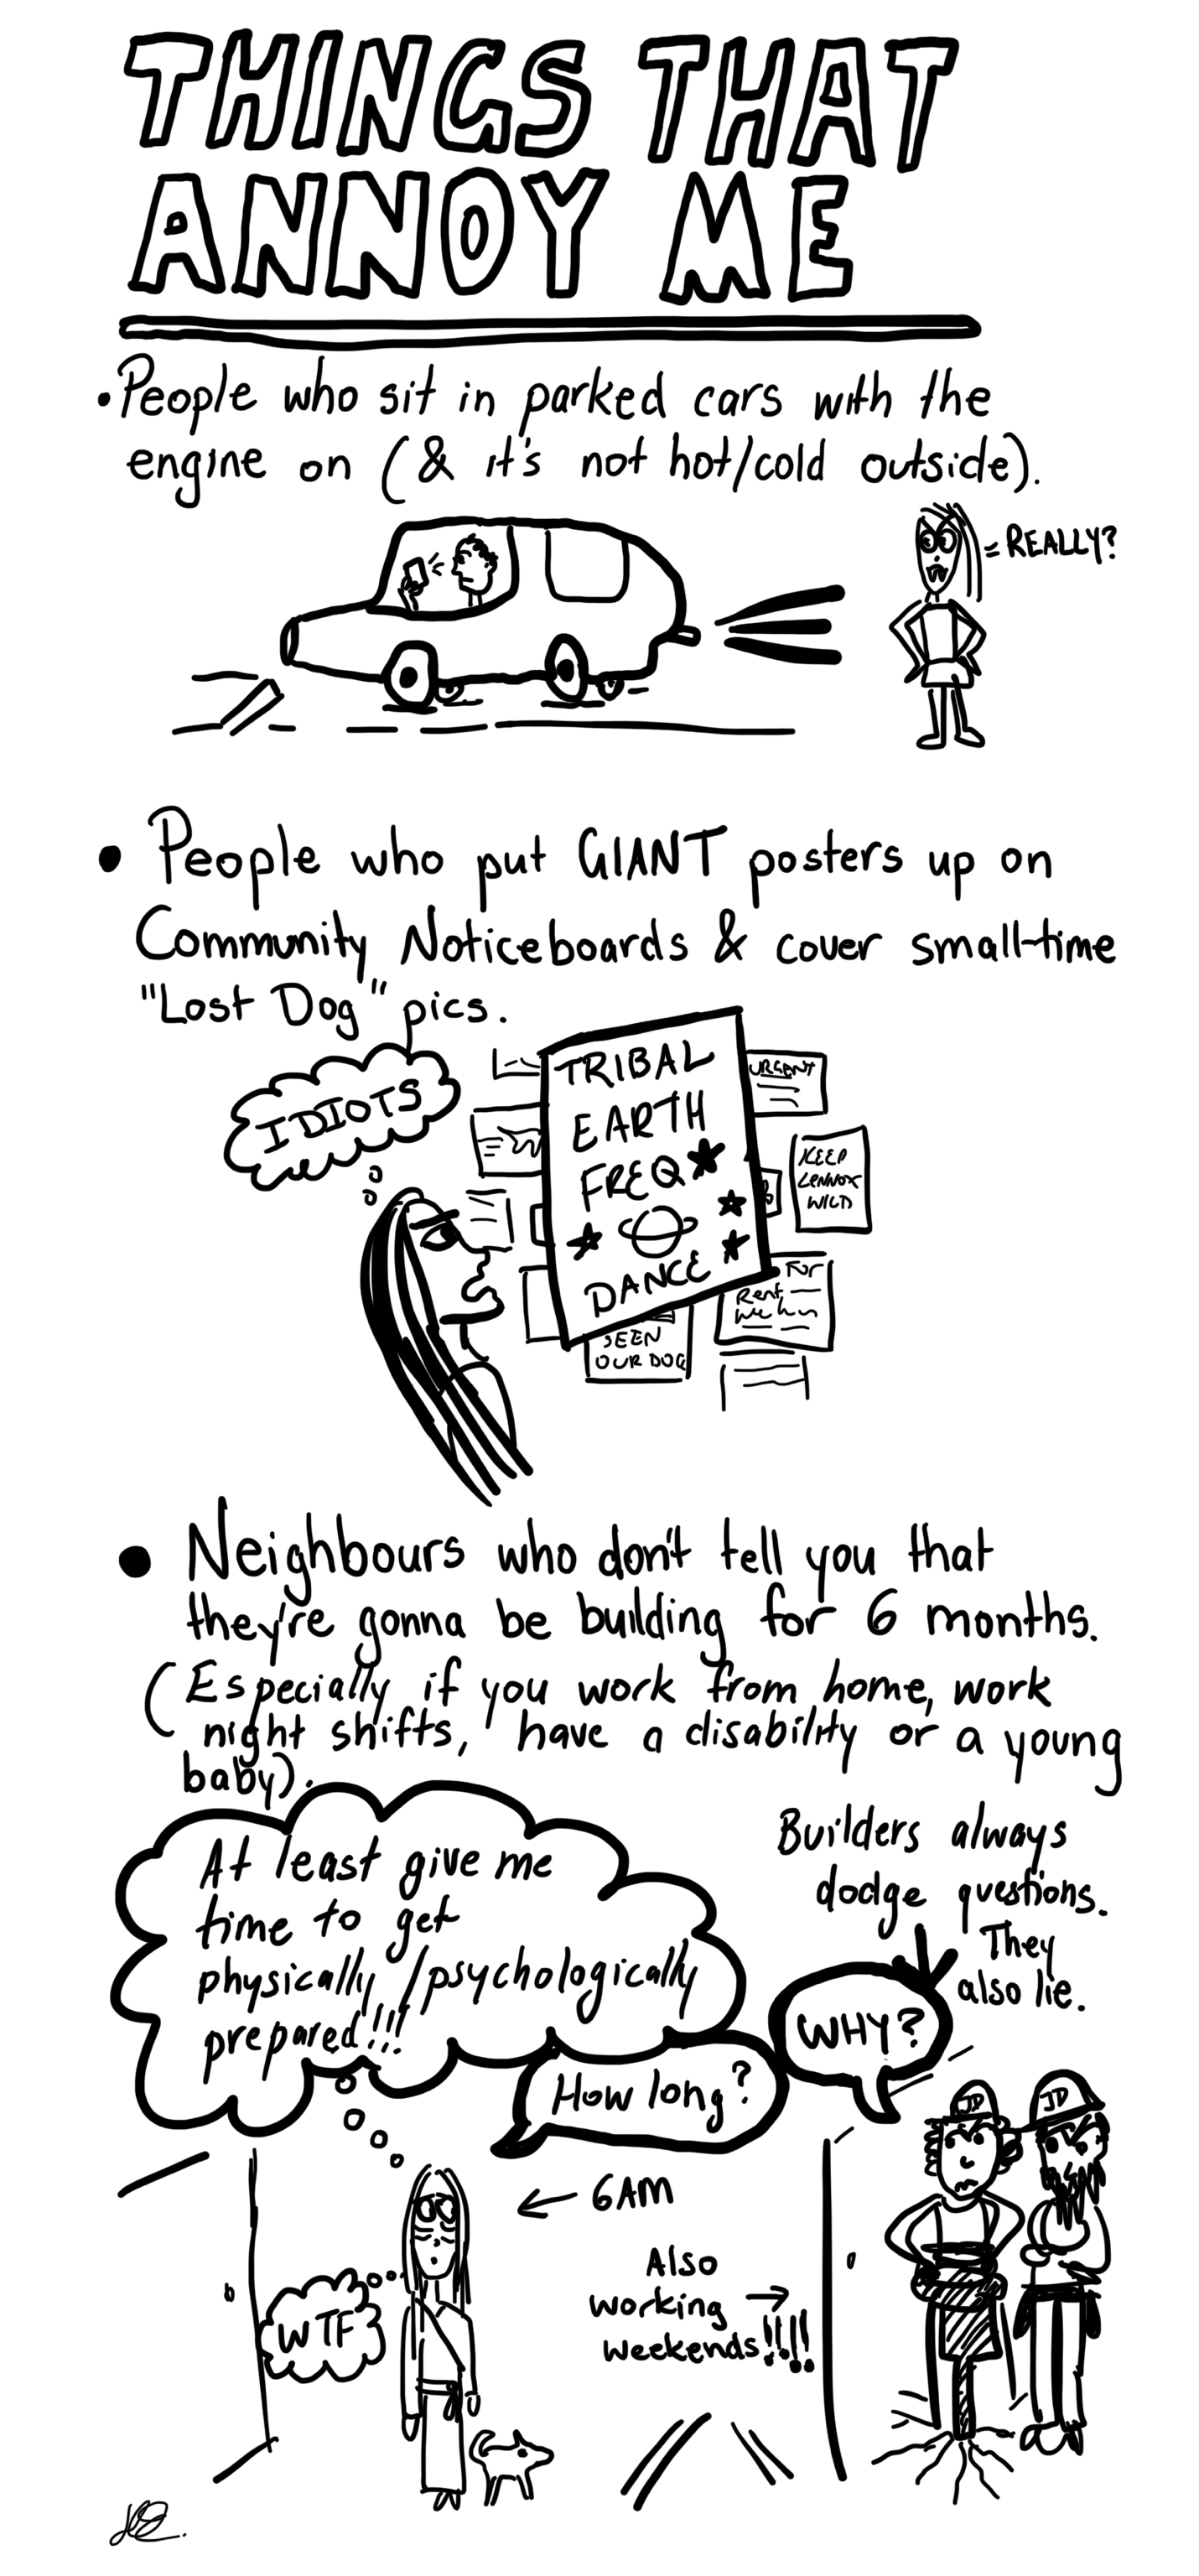 THINGS THAT
ANNOY ME
• People who sit in parked cars with the
engine on (& it's not hot/cold outside).
= REALLY?
• People who put GIANT posters up on
Community Noticeboards & cover small-time
"Lost Dog" pics.
IDIOTS
TRIBAL
EARTH
FREQ
DANCE
URGENT
KEEP
LENNOX
WILD
FOR
Rent
We
SEEN
OUR DOG
• Neighbours who don't tell you that
they're gonna be building for 6 months.
(Especially if you work from home, work
night shifts, have a disability or a young
baby).
At least give me
time to get
physically/psychologically
prepared!!!
Builders always
dodge questions.
They
also lie.
WHY?
How long?
JD
JD
← 6AM
WTF
Also
working →
weekends!!!!